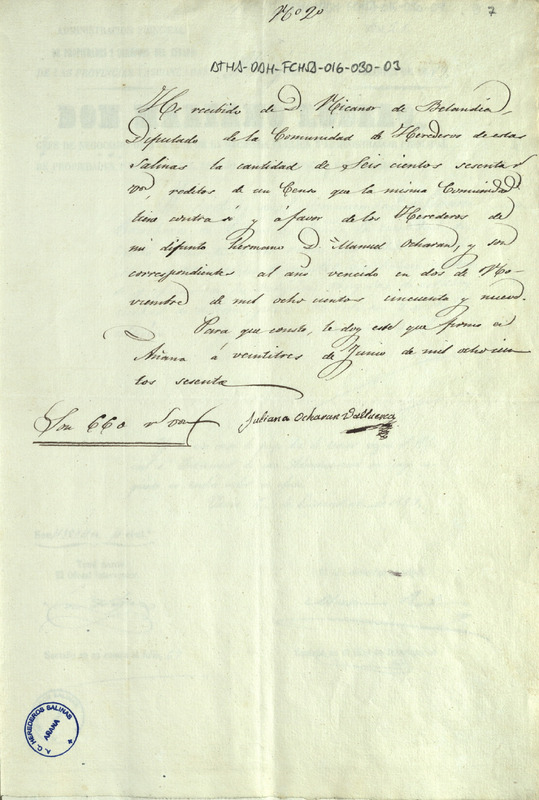 Nº 2º
7
ATHA-DAH-FCHSA-016-030-03
He recibido de D. Nicanor de Belandia,
Diputado de la Comunidad de Herederos de estas
Salinas la cantidad de Seis cientos sesenta rs
von, reditos de un Censo que la misma Comunidad
tiene contra si y á favor de los Herederos de
mi difunto hermano D. Manuel Ocharan, y son
correspondientes al año vencido en dos de No-
viembre de mil ocho cientos cincuenta y nueve.
Para que conste, le doy este que firmo en
Añana á veintitres de Junio de mil ocho cien
tos sesenta
Son 660 rs von
Juliana Ocharan Valluerca
A.C. HEREDEROS SALINAS
AÑANA